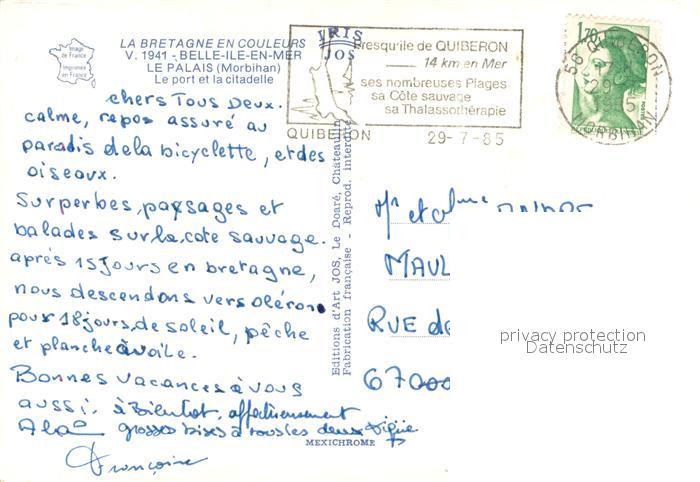 Image
de France
Imprimée
en France
LA BRETAGNE EN COULEURS
V. 1941 - BELLE-ILE-EN-MER
LE PALAIS (Morbihan)
Le port et la citadelle
IRIS
JOS
Presqu'ile de QUIBERON
14 km en Mer
ses nombreuses Plages
sa Côte sauvage
sa Thalassothérapie
QUIBERON 29-7-85
1,70
56 QUIBERON
MORBIHAN
chers Tous Deux.
calme, repos assuré au
paradis de la bicyclette, et des
oiseaux.
Surperbes, paysages et
balades sur la cote sauvage.
après 15 jours en bretagne,
nous descendons vers oléron
pour 18 jours de soleil, pêche
et planche à voile.
Bonnes vacances à vous
aussi. à Bientot, affectueusement
grosses bises à tous les deux
Françoise
Editions d'Art JOS, Le Doaré, Châteaulin
Fabrication française - Reprod. interdite
MEXICHROME
Mr et
MAUL
RUE de
67000
privacy protection
Datenschutz